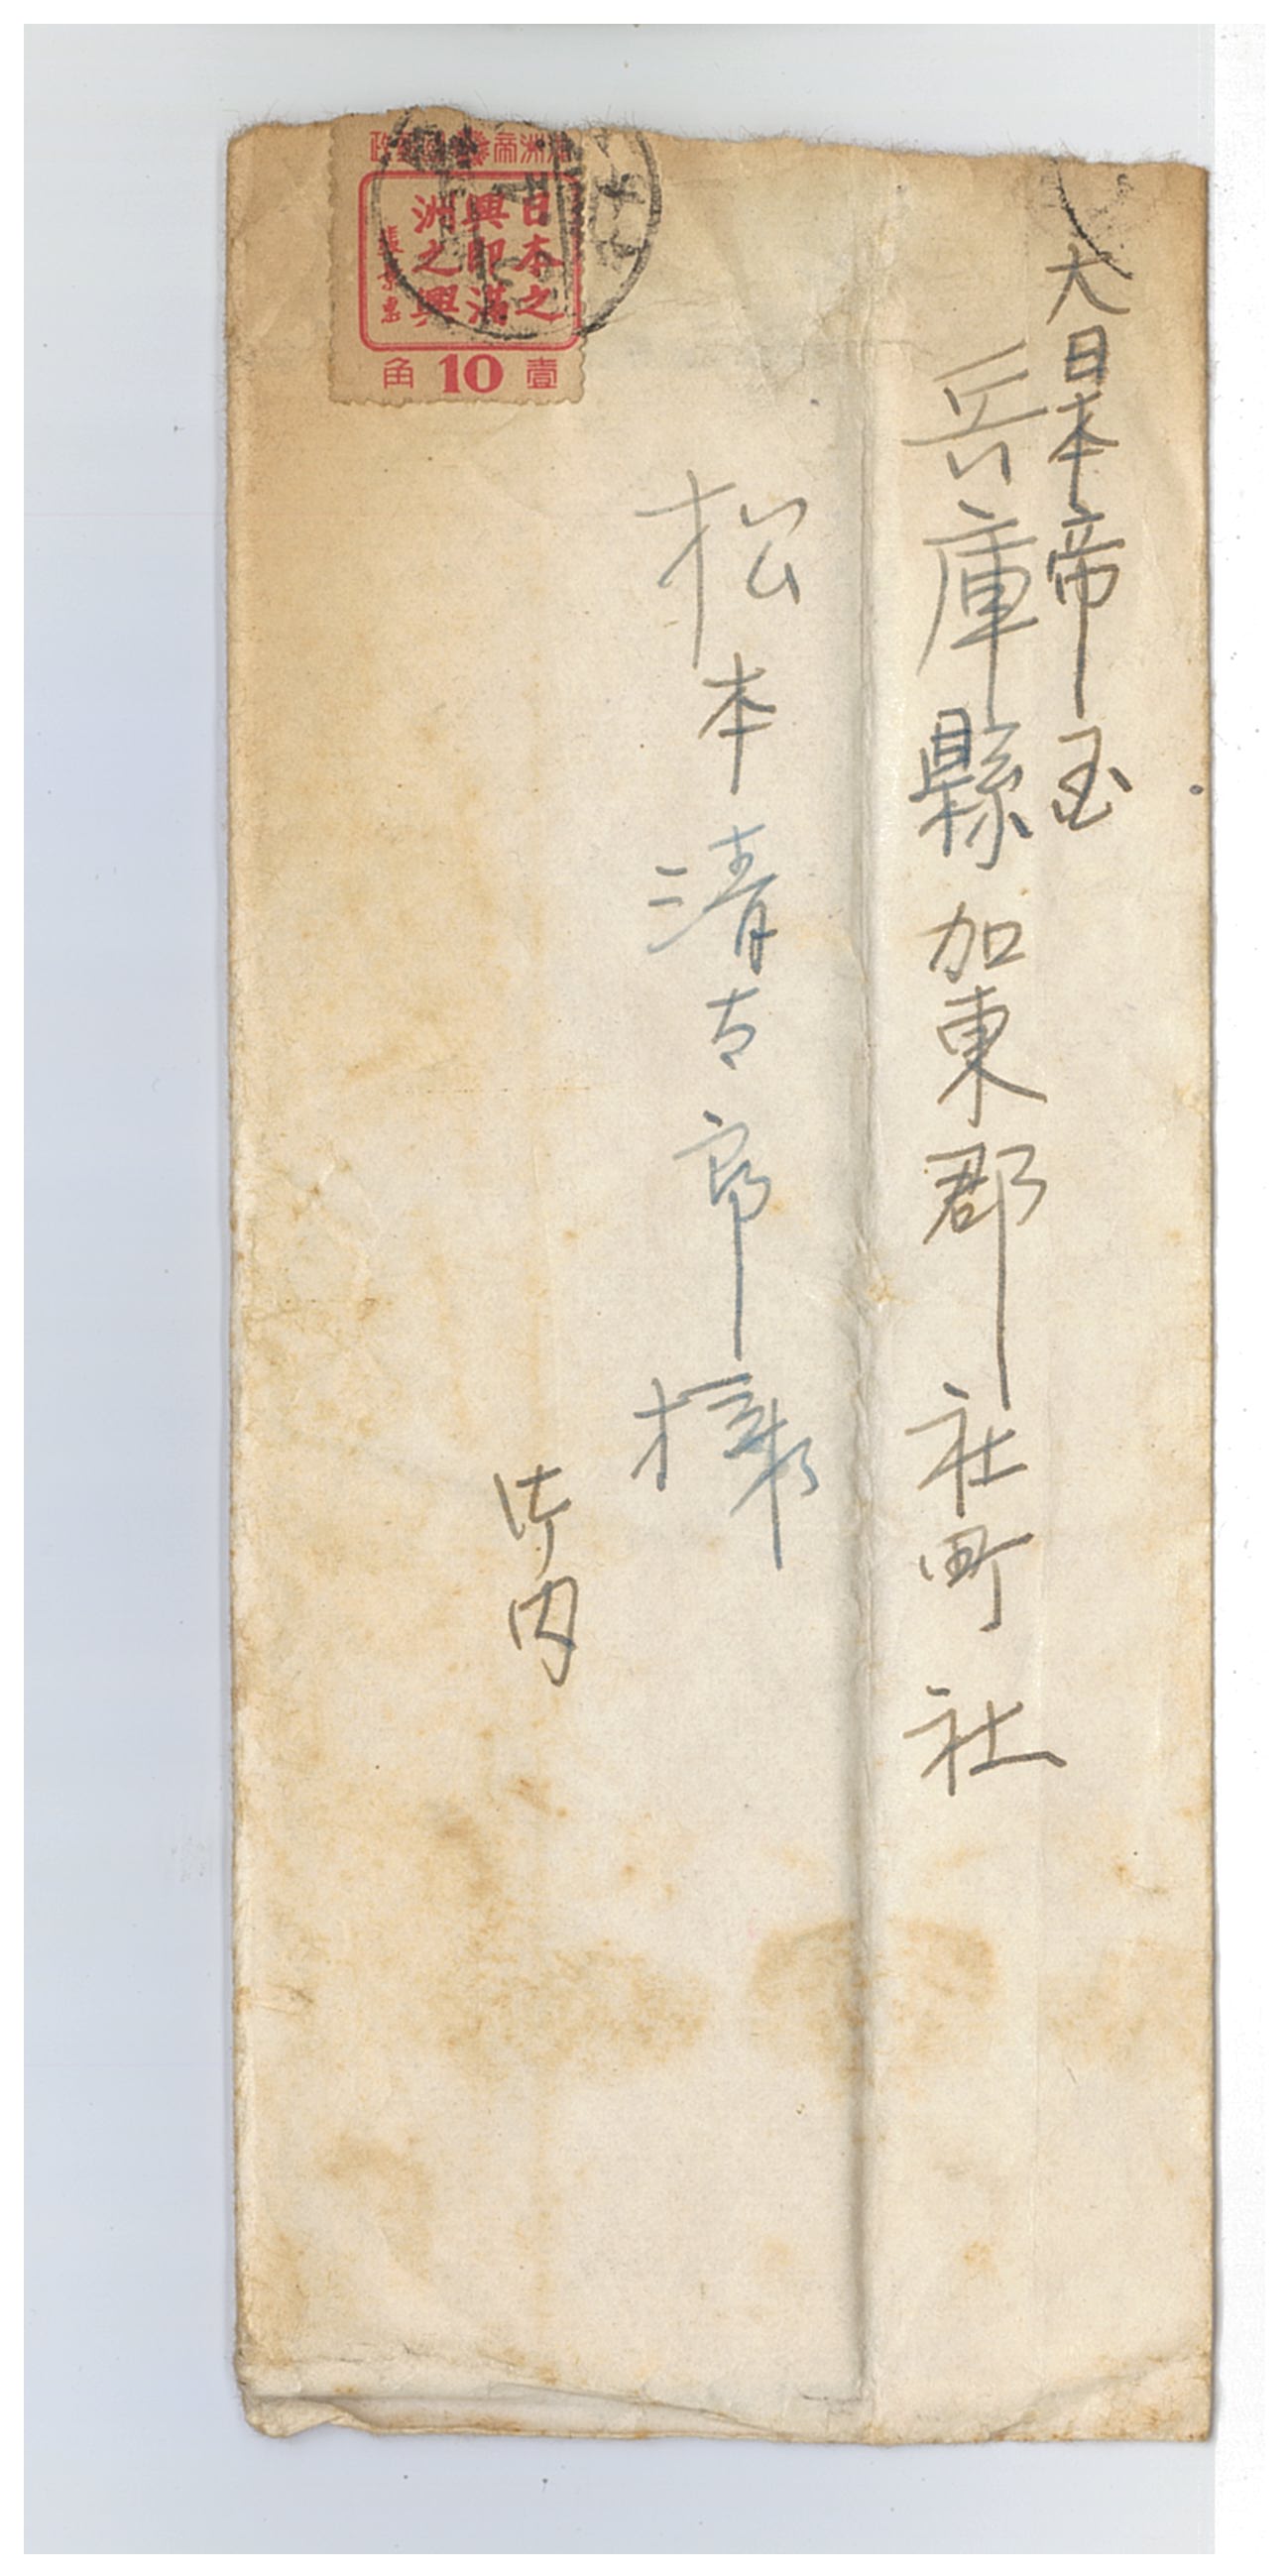 大日本帝国
兵庫縣加東郡社町社
松本清吉郎様
御内
日本之
興即滿
洲之興
張景惠
壹 10 角